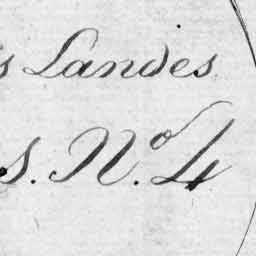 s Landes
s. No. 4